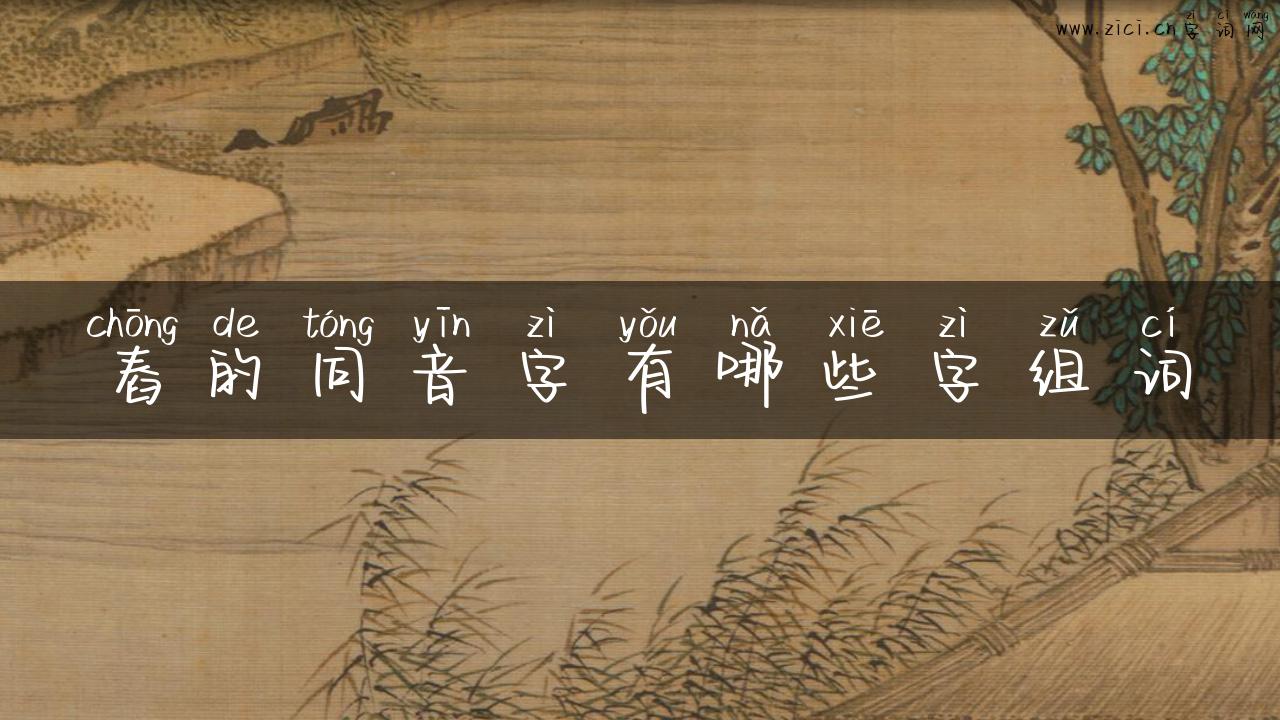 zì cí wǎng
www.zici.cn字词网
chōng de tóng yīn zì yǒu nǎ xiē zì zǔ cí
舂的同音字有哪些字组词